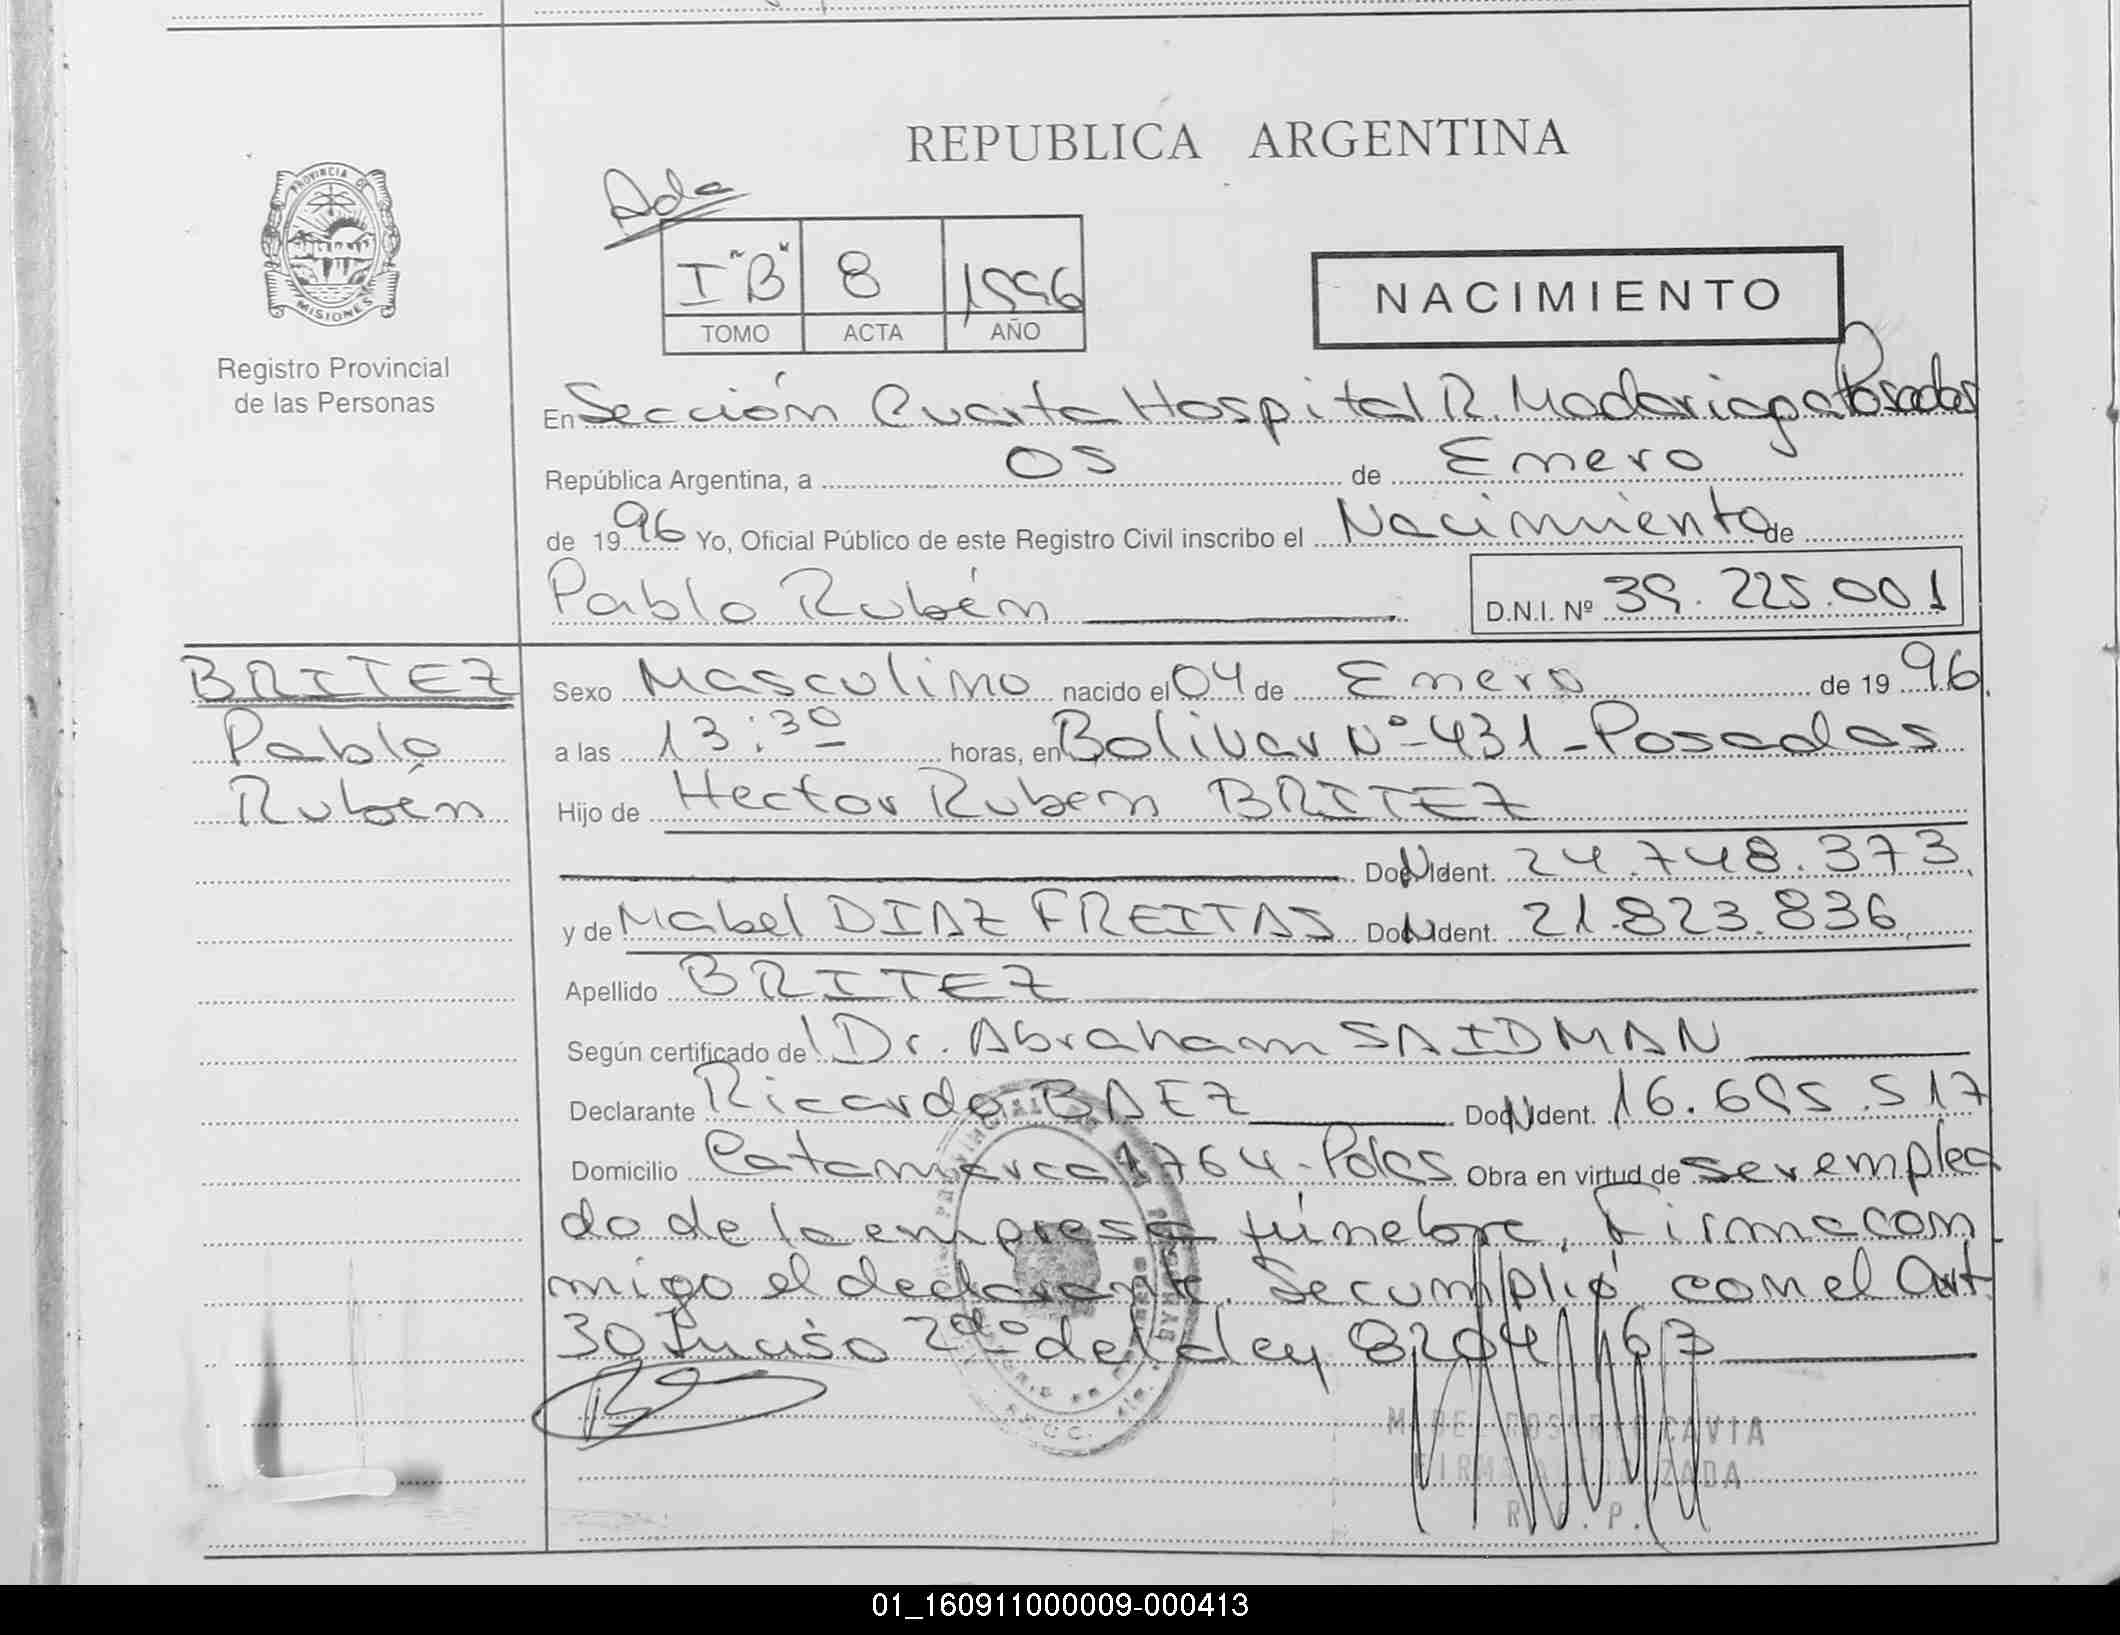 REPUBLICA ARGENTINA
PROVINCIA DE
MISIONES
Registro Provincial
de las Personas
Ada
I "B" 8 1996
TOMO ACTA AÑO
NACIMIENTO
En Sección Cuarta Hospital R. Madariaga Posadas
República Argentina, a 05 de Enero
de 1996 Yo, Oficial Público de este Registro Civil inscribo el Nacimiento de
Pablo Rubén D.N.I. Nº 39.225.001
BRITEZ
Pablo
Rubén
Sexo Masculino nacido el 04 de Enero de 1996
a las 13:30 horas, en Bolivar Nº 431 - Posadas
Hijo de Hector Ruben BRITEZ
Doc. Ident. 24.748.373
y de Mabel DIAZ FREITAS Doc. Ident. 21.823.836
Apellido BRITEZ
Según certificado del Dr. Abraham SAIDMAN
Declarante Ricardo BAEZ Doc. Ident. 16.695.517
Domicilio Catamarca 1764 - Pdas Obra en virtud de ser emplea
do de la empresa fúnebre. Firma con
migo el declarante. Se cumplió con el Art.
30 Inciso 2do del ley 8204/63
CAVIA
01_160911000009-000413